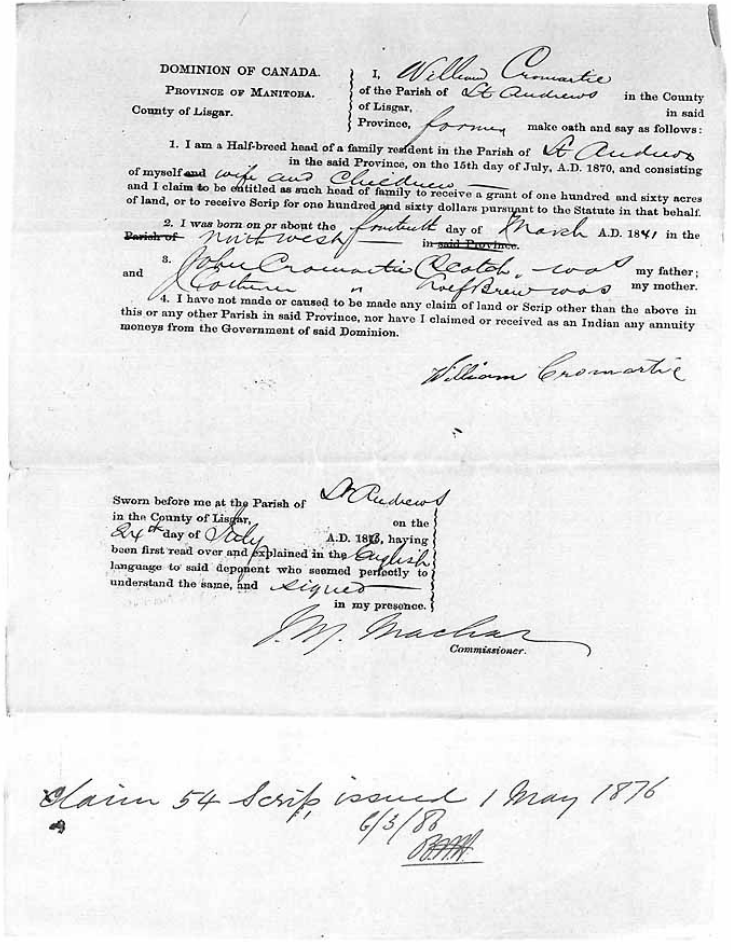 DOMINION OF CANADA.
PROVINCE OF MANITOBA.
County of Lisgar.
I, William Cromartie
of the Parish of St Andrews in the County
of Lisgar, in said
Province, farmer make oath and say as follows:
1. I am a Half-breed head of a family resident in the Parish of St Andrews
in the said Province, on the 15th day of July, A.D. 1870, and consisting
of myself and wife and Children
and I claim to be entitled as such head of family to receive a grant of one hundred and sixty acres
of land, or to receive Scrip for one hundred and sixty dollars pursuant to the Statute in that behalf.
2. I was born on or about the day of March A.D. 1841 in the
Parish of North west in said Province.
3. John Cromartie Scotch was my father;
and " was my mother.
4. I have not made or caused to be made any claim of land or Scrip other than the above in
this or any other Parish in said Province, nor have I claimed or received as an Indian any annuity
moneys from the Government of said Dominion.
William Cromartie
Sworn before me at the Parish of St Andrews
in the County of Lisgar, on the
24th day of July A.D. having
been first read over and explained in the English
language to said deponent who seemed perfectly to
understand the same, and signed
in my presence.
J. M. Machar
Commissioner.
Claim 54 Scrip, issued 1 May 1876